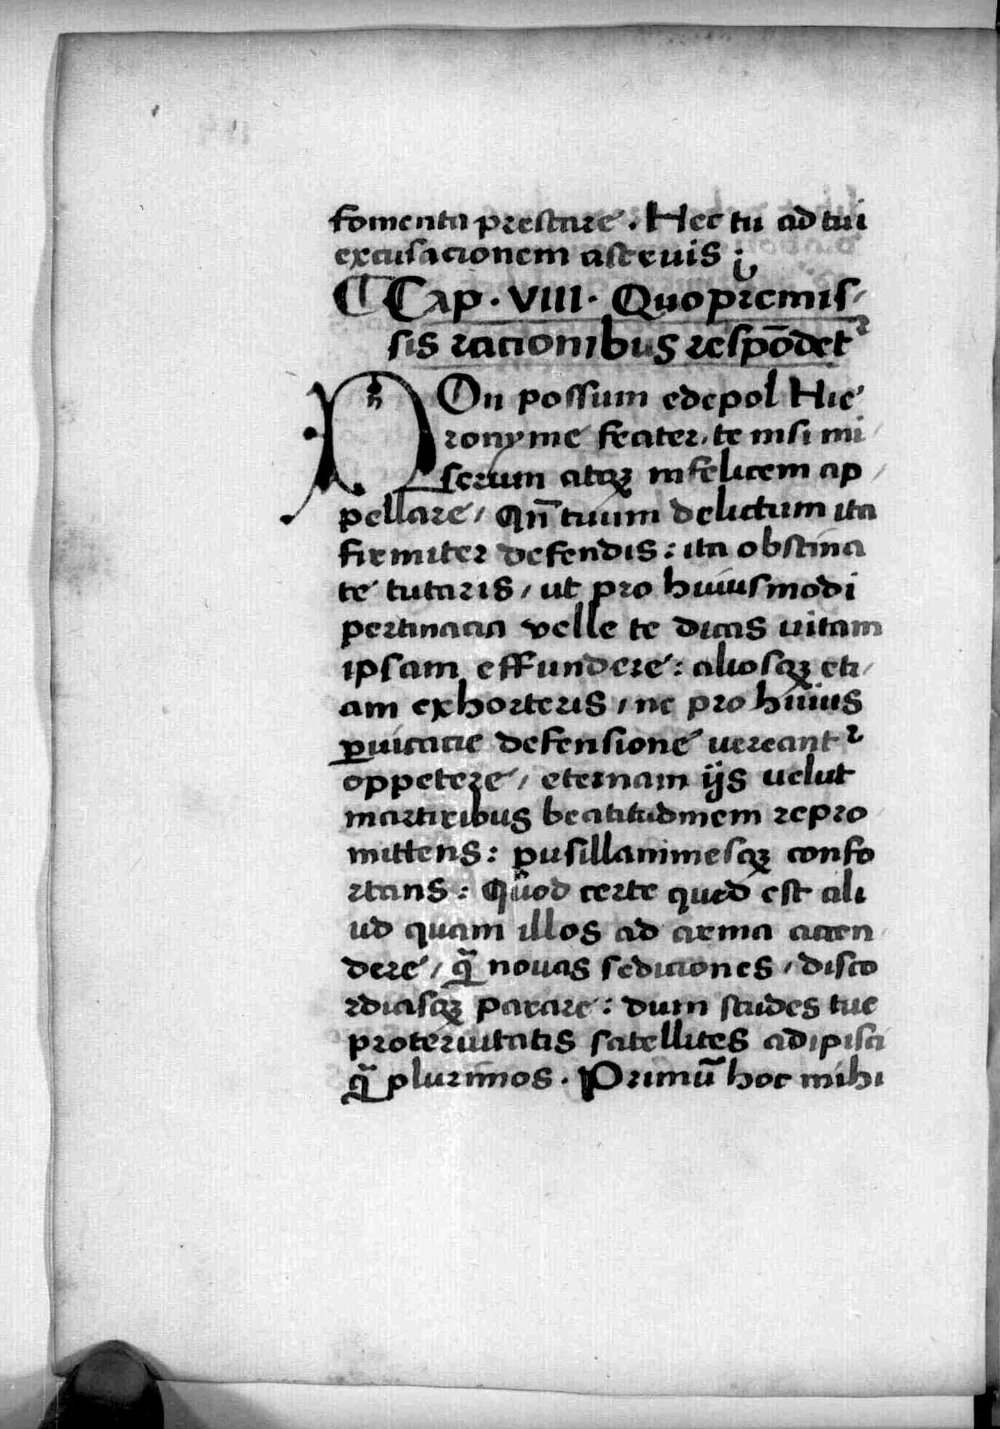 fomenta prestare. Hec tu ad tui
excusacionem astruis:
Cap. VIII. Quo premis-
sis racionibus respōdet᷑
NOn possum edepol Hie-
ronyme frater, te nisi mi-
serum atqꝫ infelicem ap-
pellare, qn̄ tuum delictum ita
firmiter defendis: ita obstina
te tutaris, ut pro huiusmodi
pertinacia velle te dicas uitam
ipsam effundere: aliosqꝫ eti-
am exhorteris, ne pro huius
ꝑuicacie defensione uereant᷑
oppetere, eternam ijs uelut
martiribus beatitudinem repro
mittens: pusillanimesqꝫ confo
rtans: Quod certe quid est ali
ud quam illos ad arma accen
dere, q̄ nouas sediciones, disco
rdiasqꝫ parare: dum studes tue
proteruitatis satellites adipisci
q̄ plurimos. Primū hoc mihi